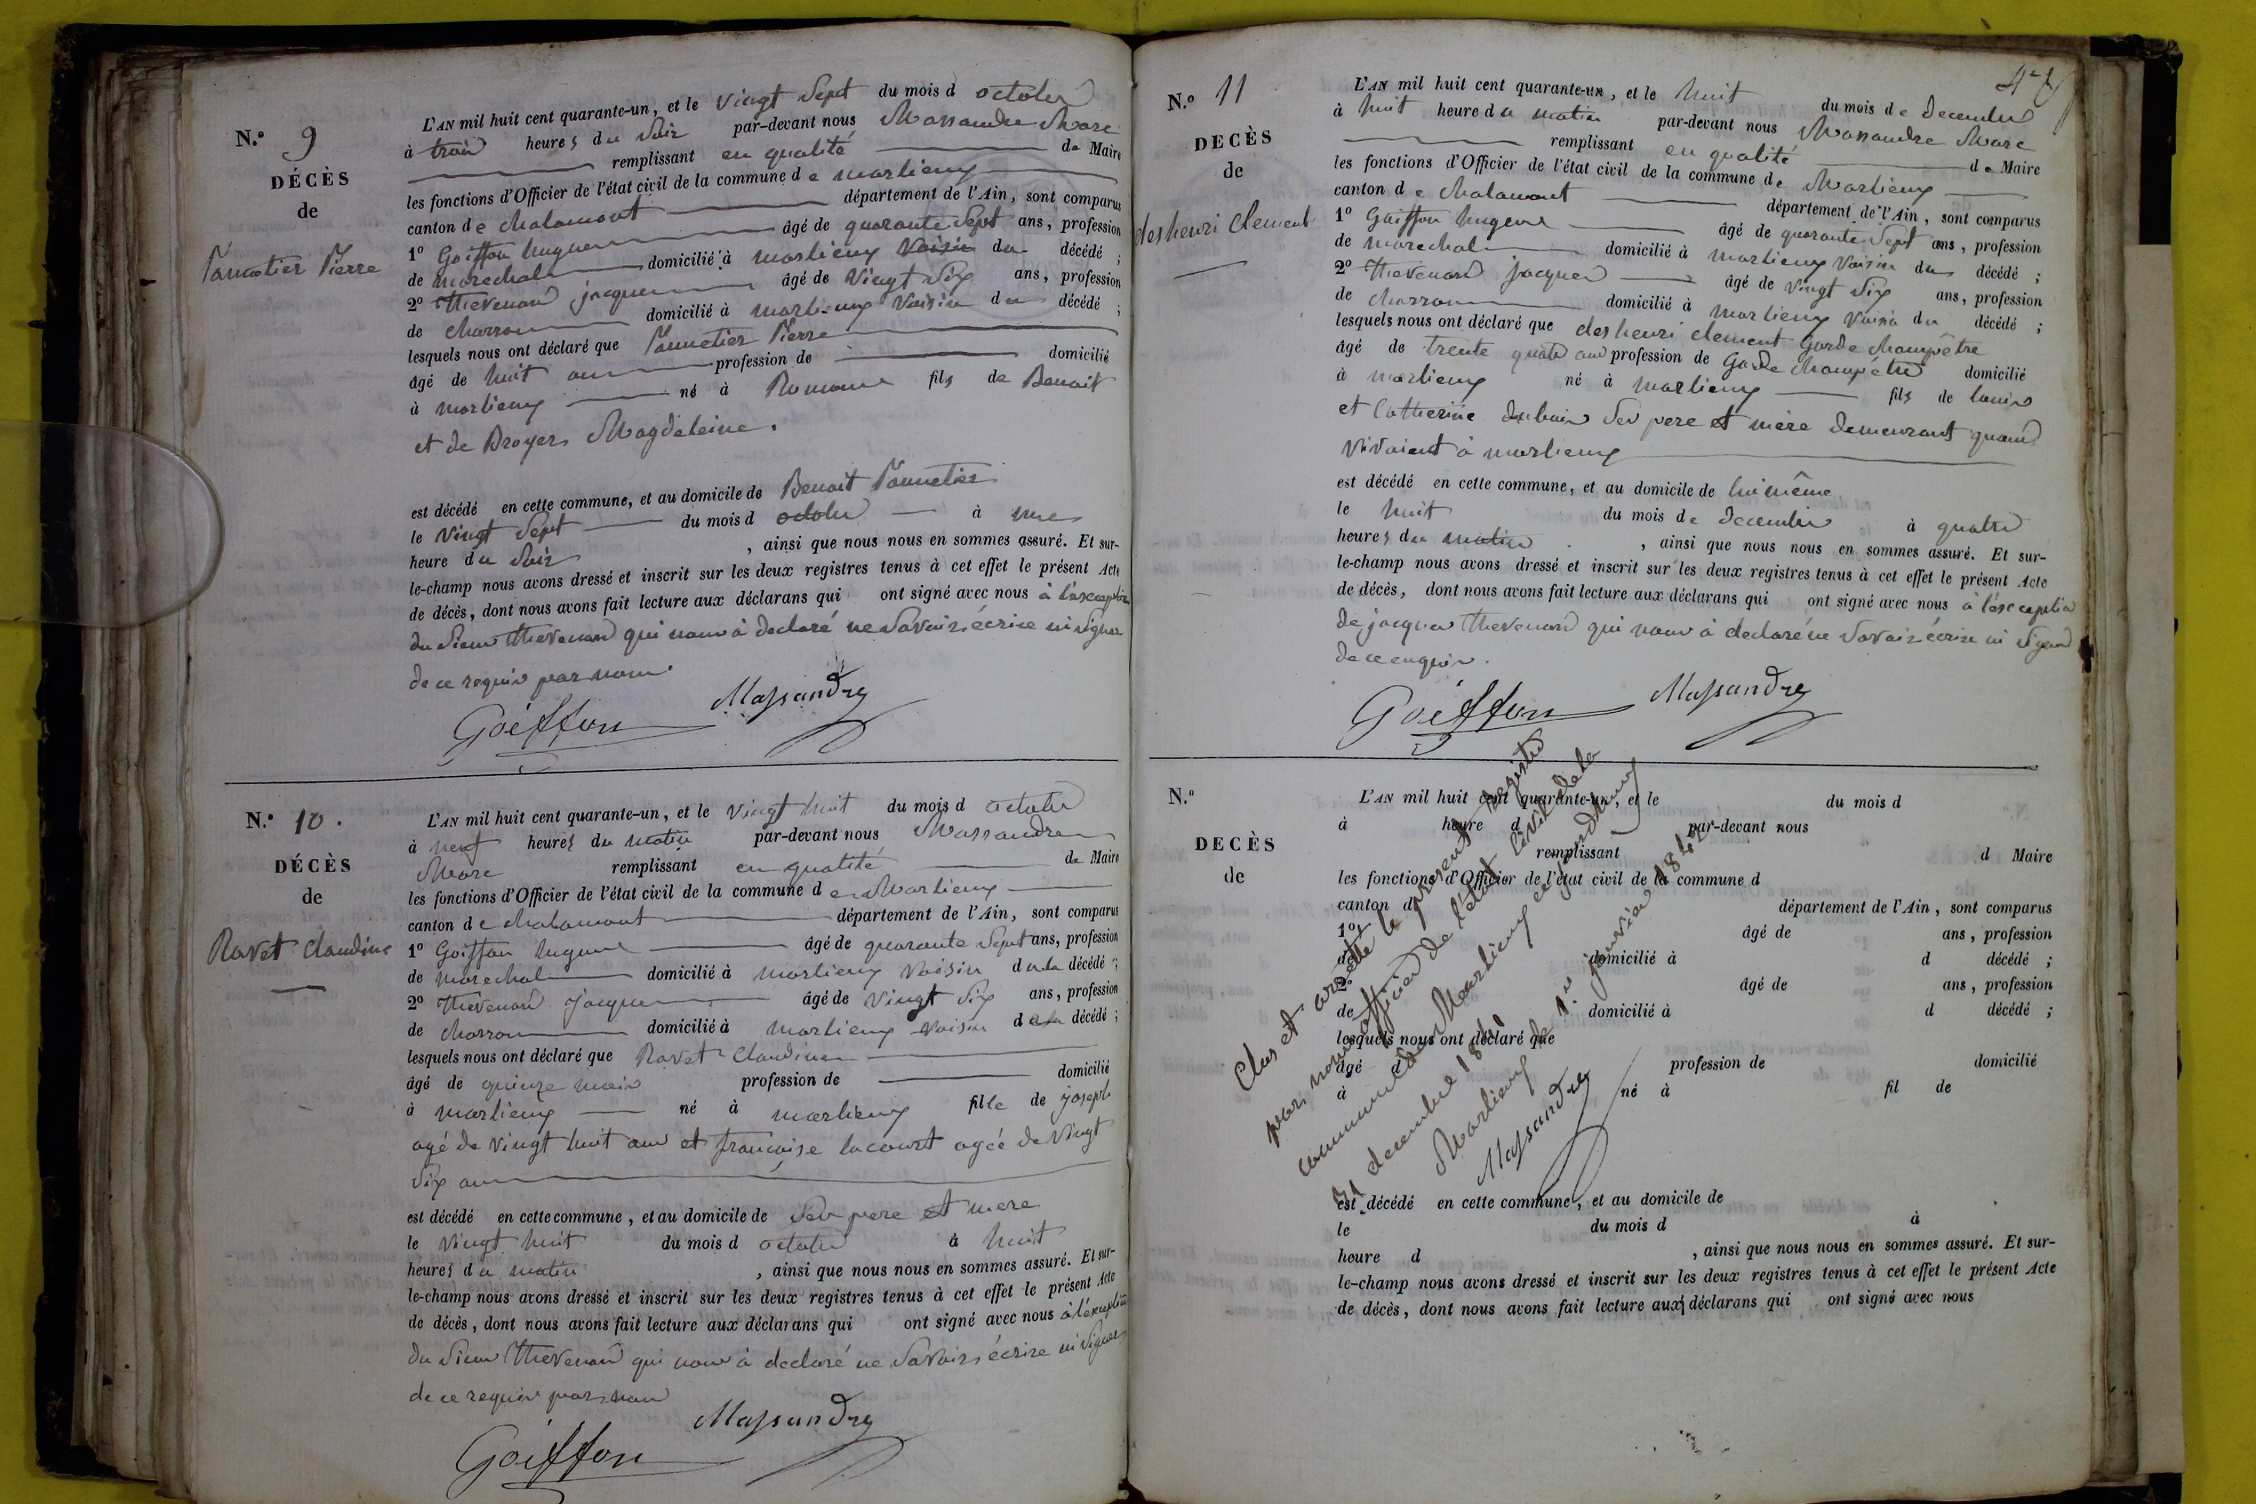 N.º 9
DÉCÈS
de
Pannetier Pierre
L'AN mil huit cent quarante-un, et le vingt sept du mois d octobre
à trois heures du soir par-devant nous Massandre Marc
remplissant en qualité de Maire
les fonctions d'Officier de l'état civil de la commune de marlieux
canton de chalamont département de l'Ain, sont comparus
1º Goiffon hugue âgé de quarante sept ans, profession
de marechal domicilié à marlieux voisin du décédé ;
2º thevenard jacque âgé de vingt six ans, profession
de charron domicilié à marlieux voisin du décédé ;
lesquels nous ont déclaré que Pannetier Pierre
âgé de huit ans profession de domicilié
à marlieux né à Romans fils de Benoit
et de Broyer Magdeleine.
est décédé en cette commune, et au domicile de Benoit Pannetier
le vingt sept du mois d octobre à une
heure du soir , ainsi que nous nous en sommes assuré. Et sur-
le-champ nous avons dressé et inscrit sur les deux registres tenus à cet effet le présent Acte
de décès, dont nous avons fait lecture aux déclarans qui ont signé avec nous à l'exception
du sieur thevenard qui nous à declaré ne savoir écrire ni signer
de ce requis par nous
Goiffon Massandre
N.º 10.
DÉCÈS
de
Ravet Claudine
L'AN mil huit cent quarante-un, et le vingt huit du mois d octobre
à neuf heures du matin par-devant nous Massandre
Marc remplissant en qualité de Maire
les fonctions d'Officier de l'état civil de la commune de Marlieux
canton de chalamont département de l'Ain, sont comparus
1º Goiffon hugue âgé de quarante sept ans, profession
de marechal domicilié à marlieux voisin de la décédé ;
2º thevenard jacque âgé de vingt six ans, profession
de charron domicilié à marlieux voisin de la décédé ;
lesquels nous ont déclaré que Ravet Claudine
âgé de quinze mois profession de domicilié
à marlieux né à marlieux fille de joseph
agé de vingt huit ans et francoise lacourt agée de vingt
six ans
est décédé en cette commune, et au domicile de ses pere et mere
le vingt huit du mois d octobre à huit
heures du matin , ainsi que nous nous en sommes assuré. Et sur-
le-champ nous avons dressé et inscrit sur les deux registres tenus à cet effet le présent Acte
de décès, dont nous avons fait lecture aux déclarans qui ont signé avec nous à l'exception
du sieur thevenard qui nous à declaré ne savoir écrire ni signer
de ce requis par nous
Goiffon Massandre
N.º 11
DÉCÈS
de
deshenri Clement
L'AN mil huit cent quarante-un, et le huit du mois de decembre
à huit heure du matin par-devant nous Massandre Marc
remplissant en qualité de Maire
les fonctions d'Officier de l'état civil de la commune de Marlieux
canton de chalamont département de l'Ain, sont comparus
1º Goiffon hugue âgé de quarante sept ans, profession
de marechal domicilié à marlieux voisin du décédé ;
2º thevenard jacque âgé de vingt six ans, profession
de charron domicilié à marlieux voisin du décédé ;
lesquels nous ont déclaré que deshenri clement Garde champêtre
âgé de trente quatre ans profession de Garde champêtre domicilié
à marlieux né à marlieux fils de louis
et Catherine dubois ses pere et mère demeurant quand
vivaient à marlieux
est décédé en cette commune, et au domicile de lui même
le huit du mois de decembre à quatre
heures du matin , ainsi que nous nous en sommes assuré. Et sur-
le-champ nous avons dressé et inscrit sur les deux registres tenus à cet effet le présent Acte
de décès, dont nous avons fait lecture aux déclarans qui ont signé avec nous à l'exception
de jacque thevenard qui nous à declaré ne savoir écrire ni signer
de ce enquis.
Goiffon Massandre
N.º
DÉCÈS
de
L'AN mil huit cent quarante-un, et le du mois d
à heure d par-devant nous
remplissant d Maire
les fonctions d'Officier de l'état civil de la commune d
canton d département de l'Ain, sont comparus
1º âgé de ans, profession
de domicilié à d décédé ;
2º âgé de ans, profession
de domicilié à d décédé ;
lesquels nous ont déclaré que
âgé d profession de domicilié
à né à fil de
est décédé en cette commune, et au domicile de
le du mois d à
heure d , ainsi que nous nous en sommes assuré. Et sur-
le-champ nous avons dressé et inscrit sur les deux registres tenus à cet effet le présent Acte
de décès, dont nous avons fait lecture aux déclarans qui ont signé avec nous
Clos et arrêté le présent Registre
par nous officier de l'état Civil de la
commune de Marlieux ce jourdhuy
31 decembre 1841
Marlieux le 1er janvier 1842
Massandre